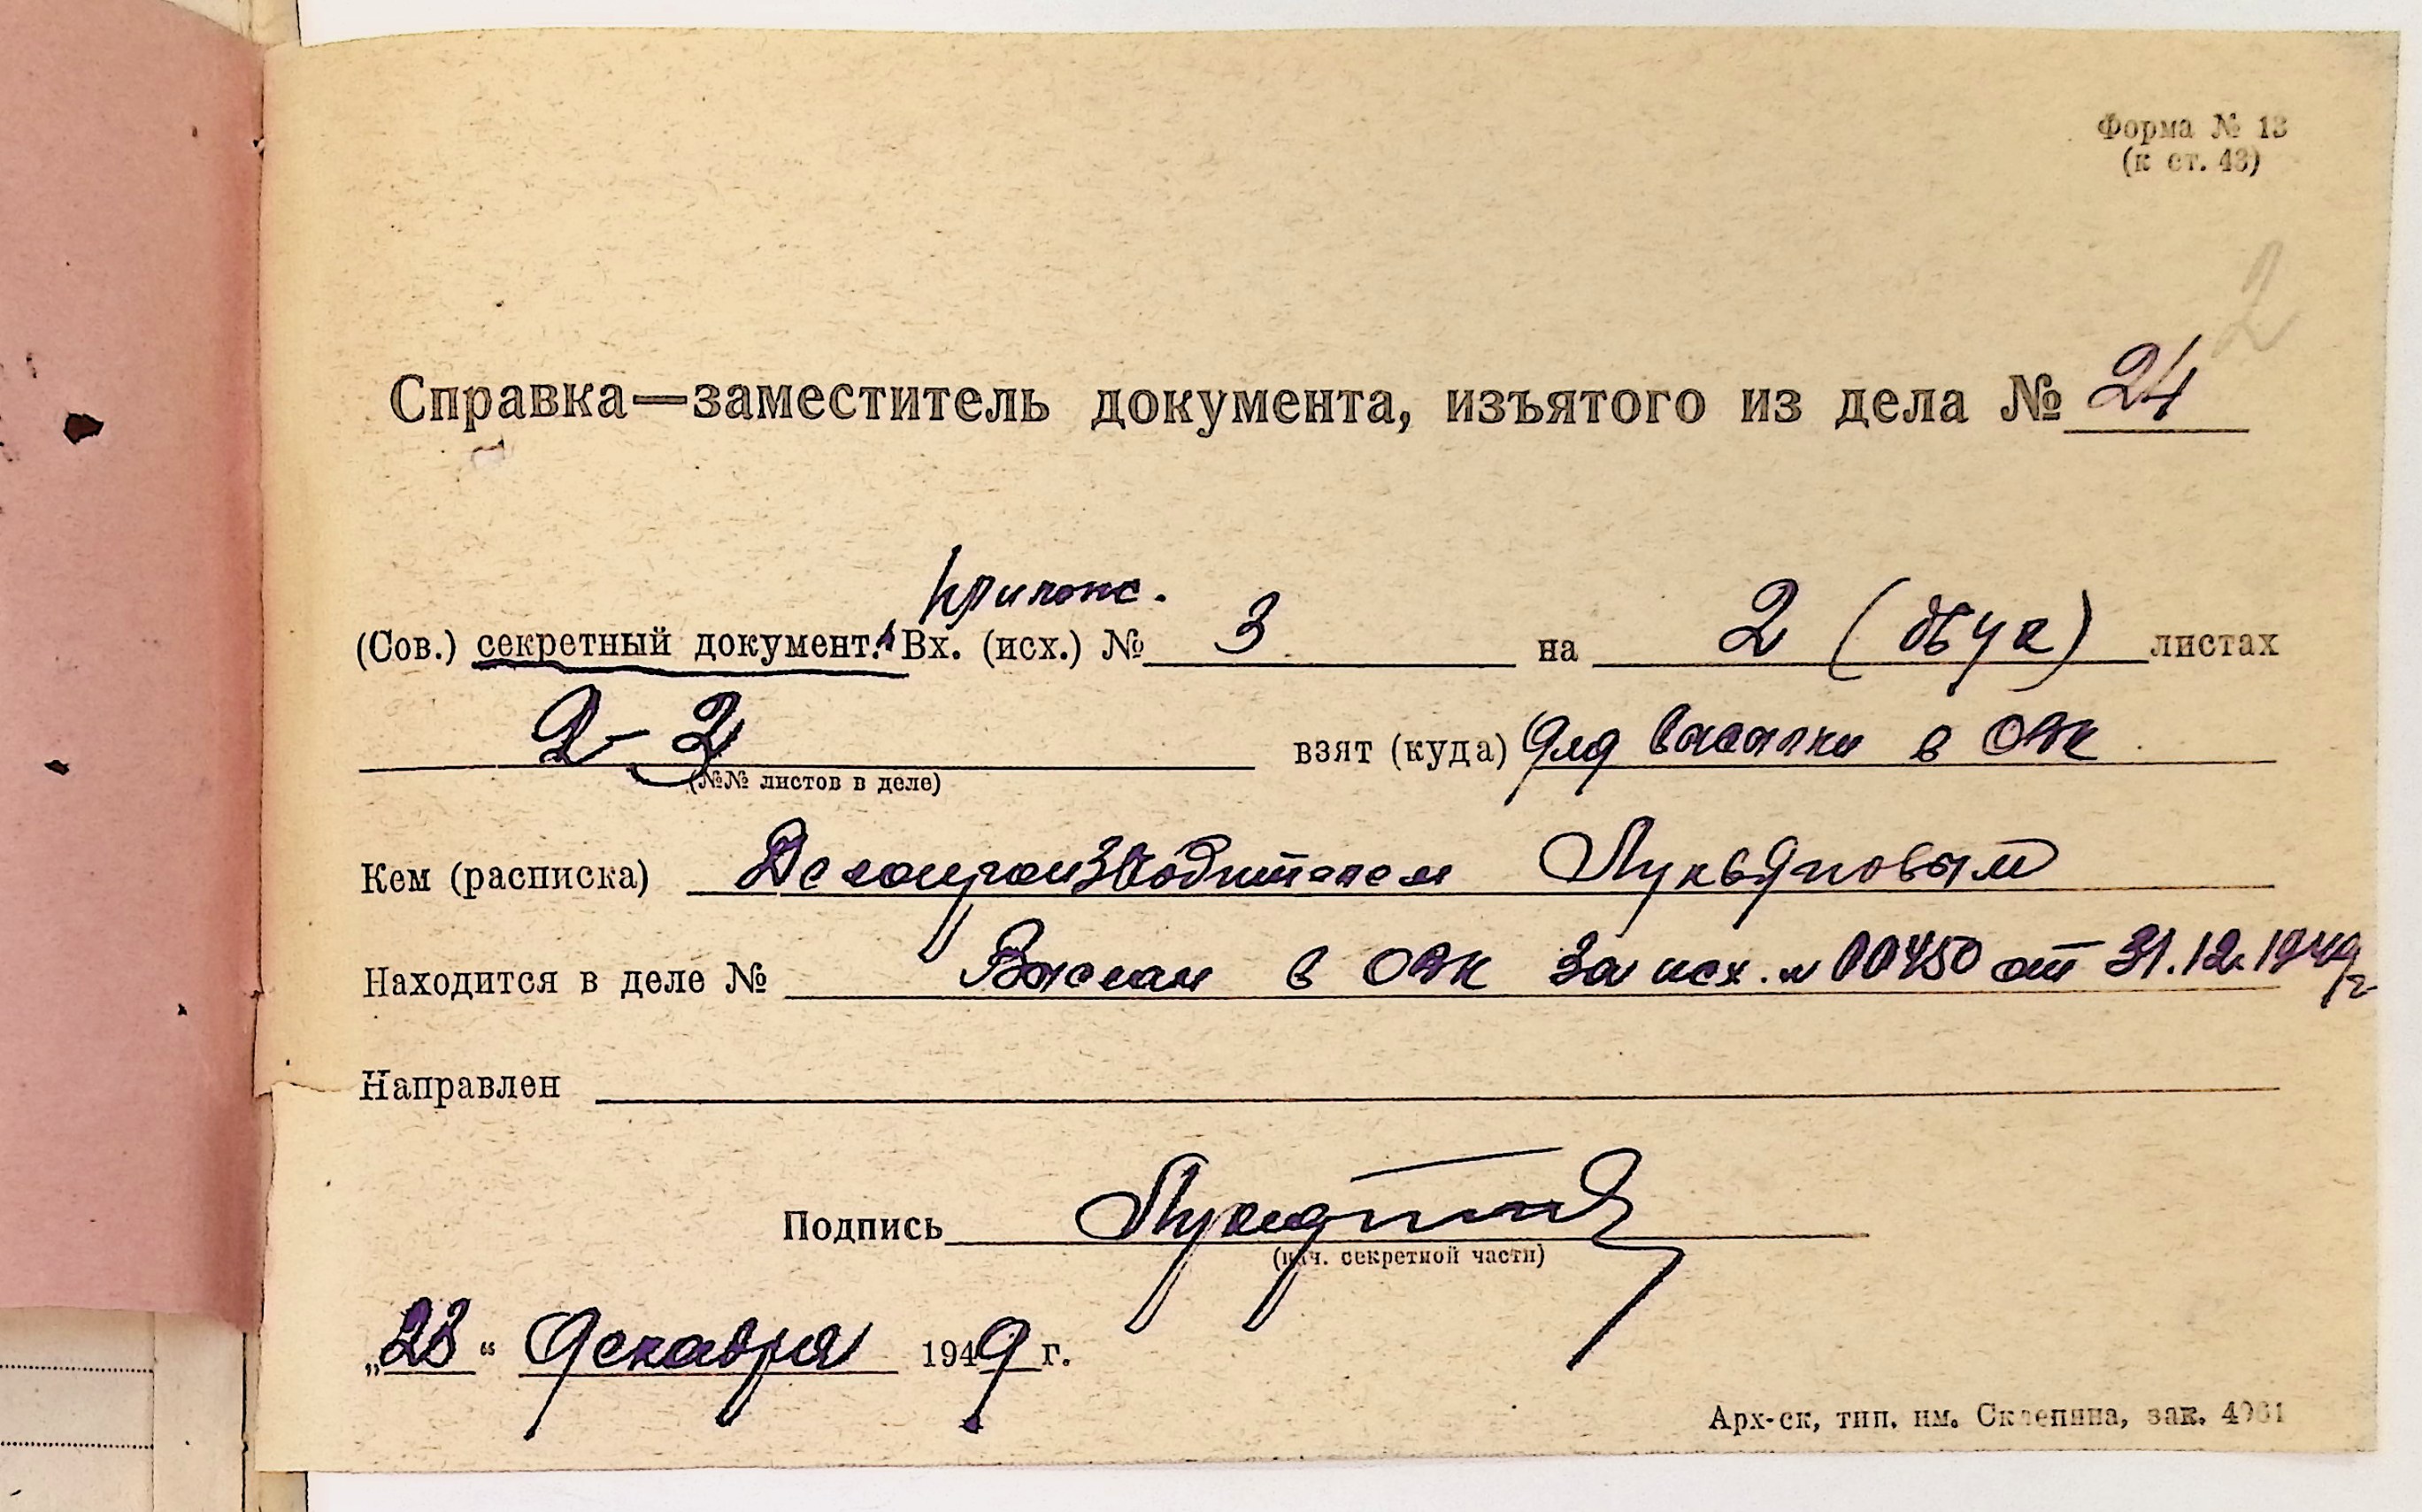 Форма № 13
(к ст. 43)
2
Справка—заместитель документа, изъятого из дела № 24
прилож.
(Сов.) секретный документ. Вх. (исх.) № 3 на 2 (двух) листах
2-3 взят (куда) для высылки в ОВК
(№№ листов в деле)
Кем (расписка) Делопроизводителем Лукьяновым
Находится в деле № Выслан в ОВК за исх. № 00450 от 31.12.1949 г
Направлен
Подпись
(нач. секретной части)
„28“ декабря 1949 г.
Арх-ск, тип. им. Склепина, зак. 4961